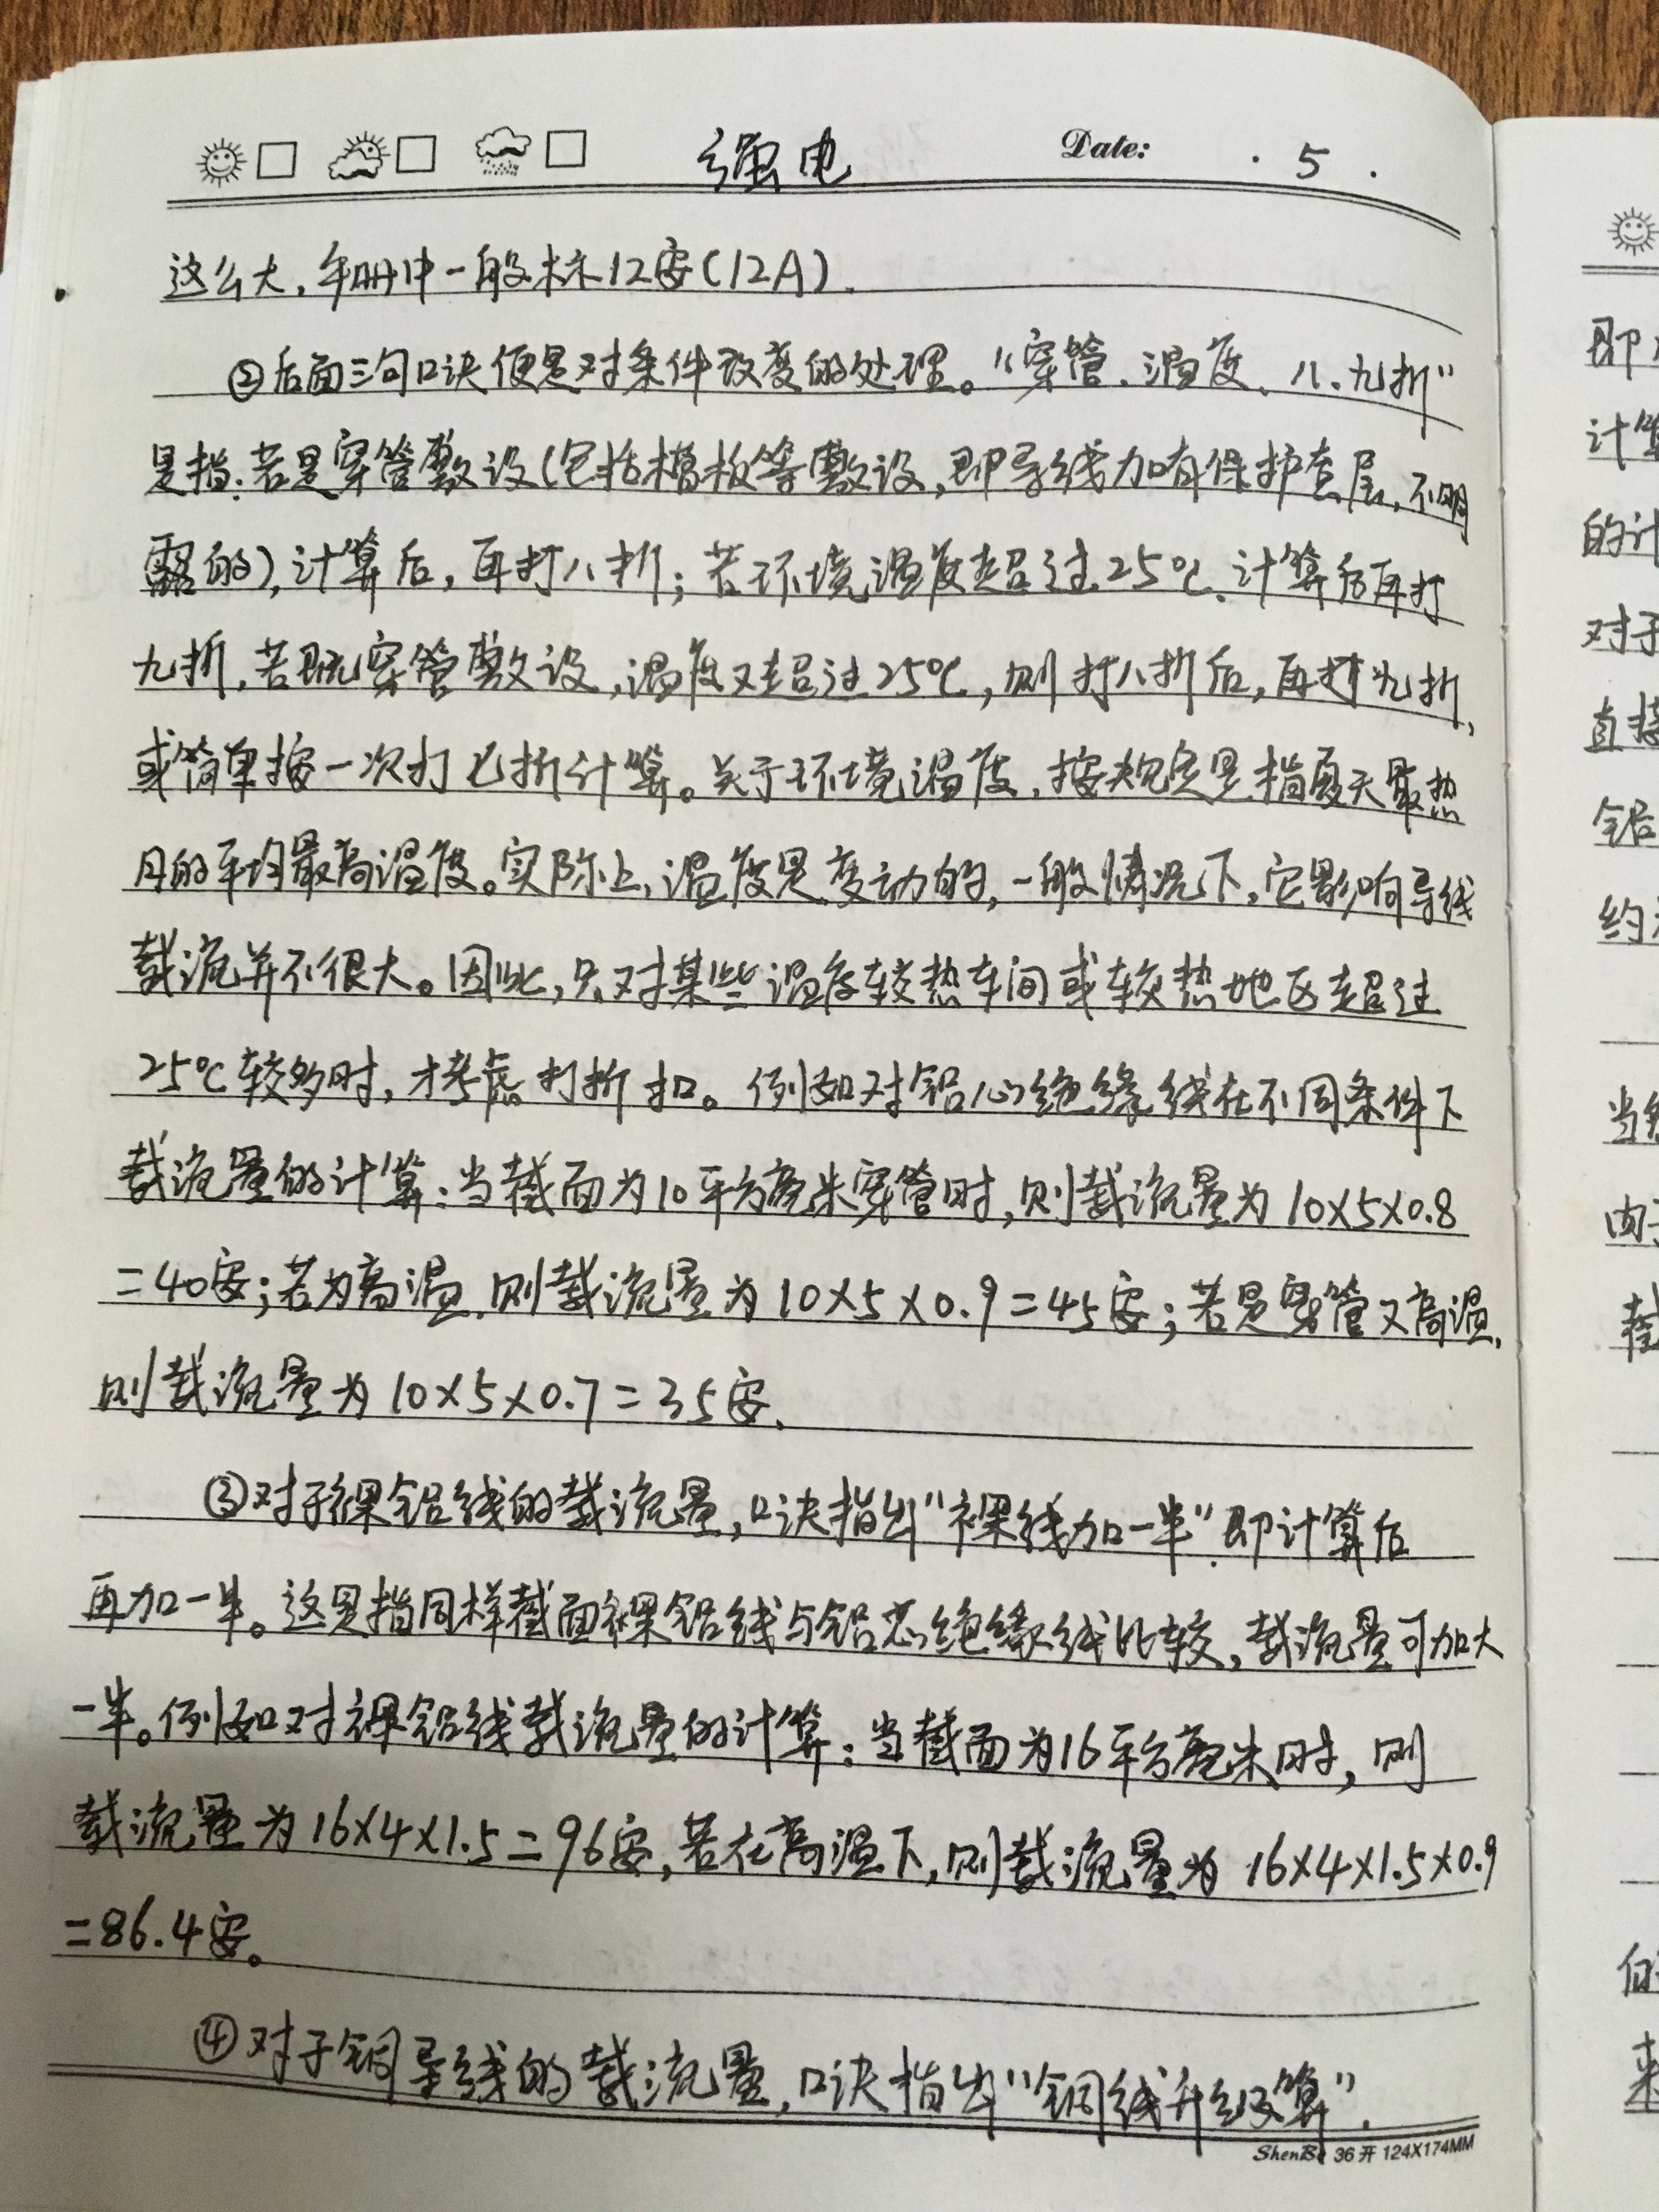 强电
Date: . 5 .
这么大,手册中一般标12安(12A).
②后面三句口诀便是对条件改变的处理。“穿管、温度、八、九折”
是指:若是穿管敷设(包括槽板等敷设,即导线加有保护套层,不明
露的),计算后,再打八折;若环境温度超过25℃,计算后再打
九折,若既穿管敷设,温度又超过25℃,则打八折后,再打九折,
或简单按一次打七折计算。关于环境温度,按规定是指夏天最热
月的平均最高温度。实际上,温度是变动的,一般情况下,它影响导线
载流并不很大。因此,只对某些温度较热车间或较热地区超过
25℃较多时,才考虑打折扣。例如对铝心绝缘线在不同条件下
载流量的计算:当截面为10平方毫米穿管时,则载流量为10×5×0.8
=40安;若为高温,则载流量为10×5×0.9=45安;若是穿管又高温,
则载流量为10×5×0.7=35安.
③对于裸铝线的载流量,口诀指出“裸线加一半”.即计算后
再加一半。这是指同样截面裸铝线与铝芯绝缘线比较,载流量可加大
一半。例如对裸铝线载流量的计算:当截面为16平方毫米时,则
载流量为16×4×1.5=96安,若在高温下,则载流量为16×4×1.5×0.9
=86.4安。
④对于铜导线的载流量,口诀指出“铜线升级算”.
36开 124X174MM
即
计算
的计
对于
直接
铝
约
当
由于
截
的
来